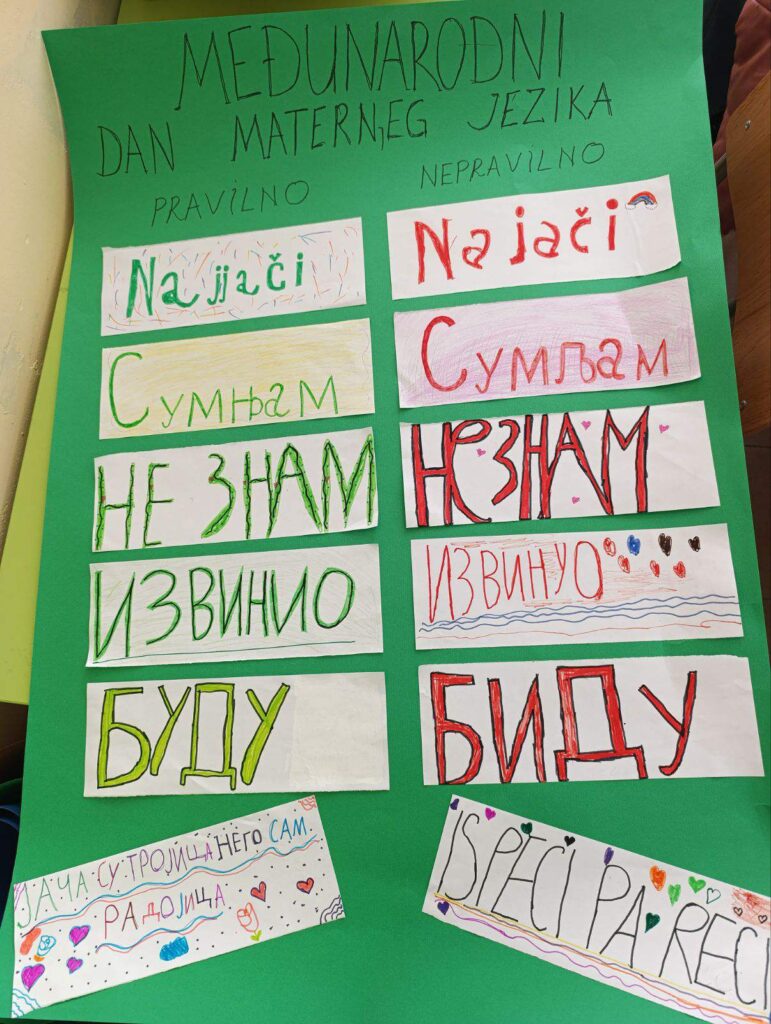 MEĐUNARODNI
DAN MATERNJEG JEZIKA
PRAVILNO NEPRAVILNO
Najjači Najači
Сумњам Сумљам
НЕ ЗНАМ НеЗНАМ
ИЗВИНИО ИЗВИНУО
БУДУ БИДУ
ЈАЧА СУ ТРОЈИЦА НЕГО САМ
РАДОЈИЦА
ISPECI PA RECI